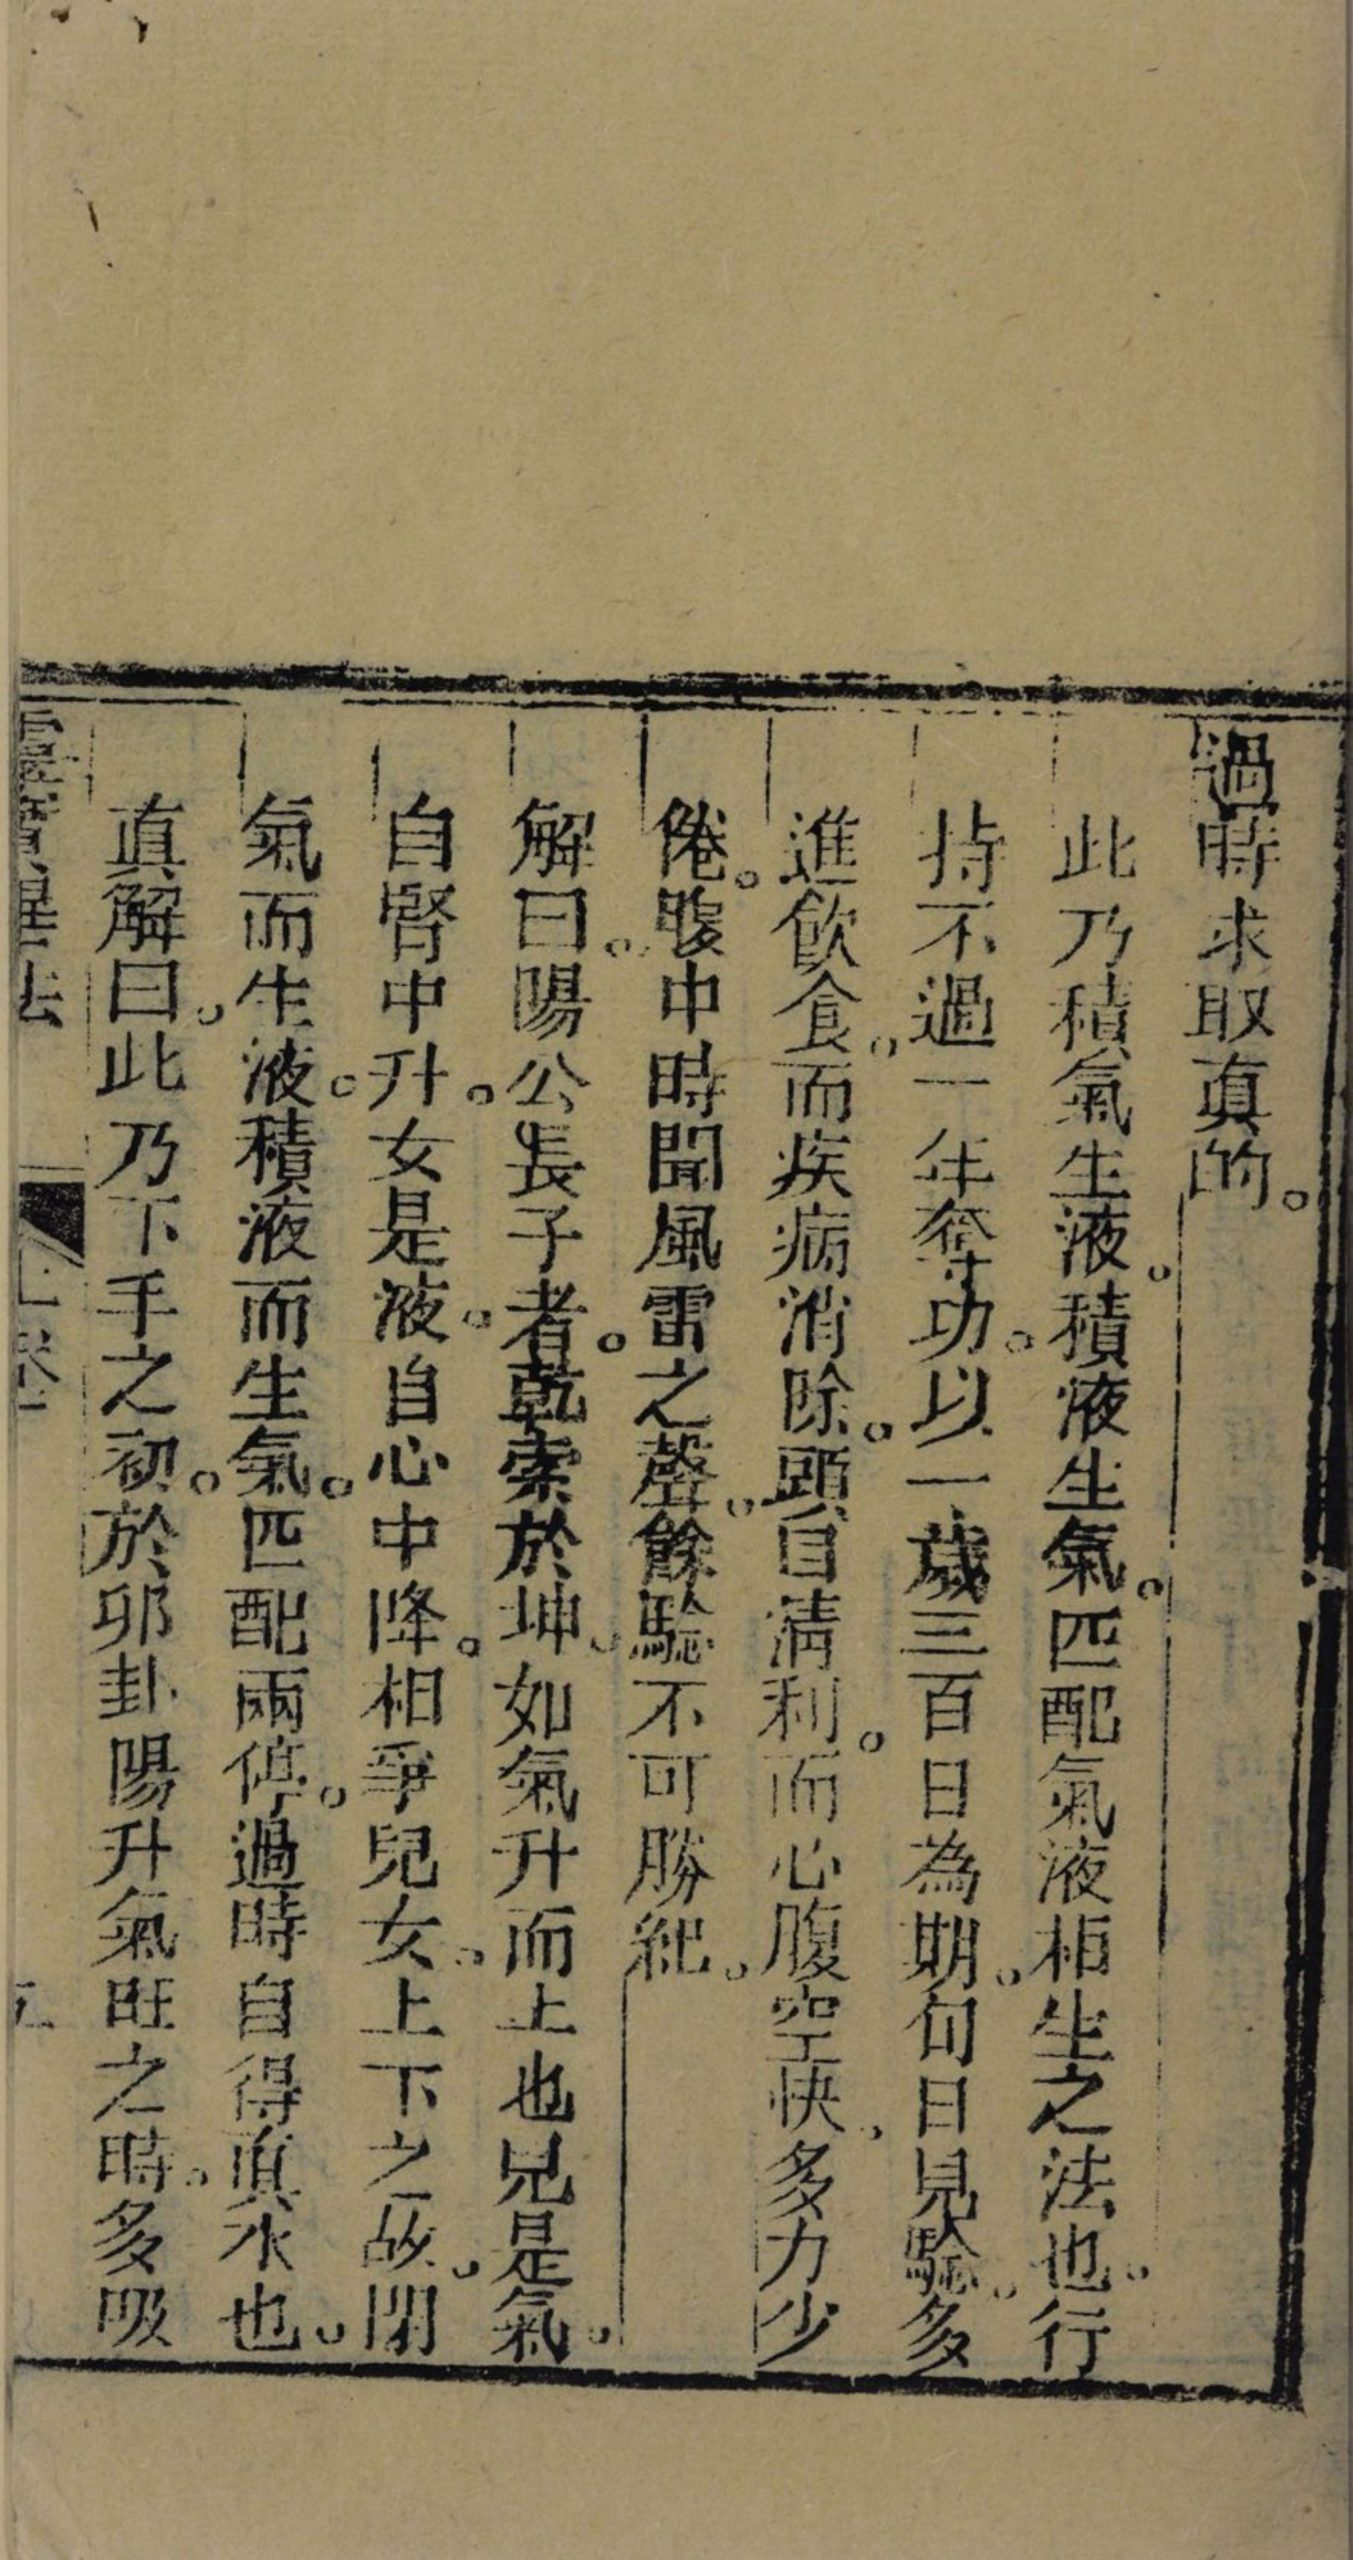 過時求取真的。
此乃積氣生液。積液生氣。匹配氣液相生之法也。行
持不過一年奪功。以一歲三百日為期。旬日見驗。多
進飲食。而疾病消除。頭目清利。而心腹空快、多力少
倦。腹中時聞風雷之聲。餘驗不可勝紀。
解曰。陽公長子者。乾索於坤。如氣升而上也兒是氣。
自腎中升。女是液。自心中降。相爭兒女。上下之故。閉
氣而生液。積液而生氣。匹配兩停。過時自得真水也。
真解曰。此乃下手之初。於卯卦陽升氣旺之時。多吸
靈寶畢法 上卷 五